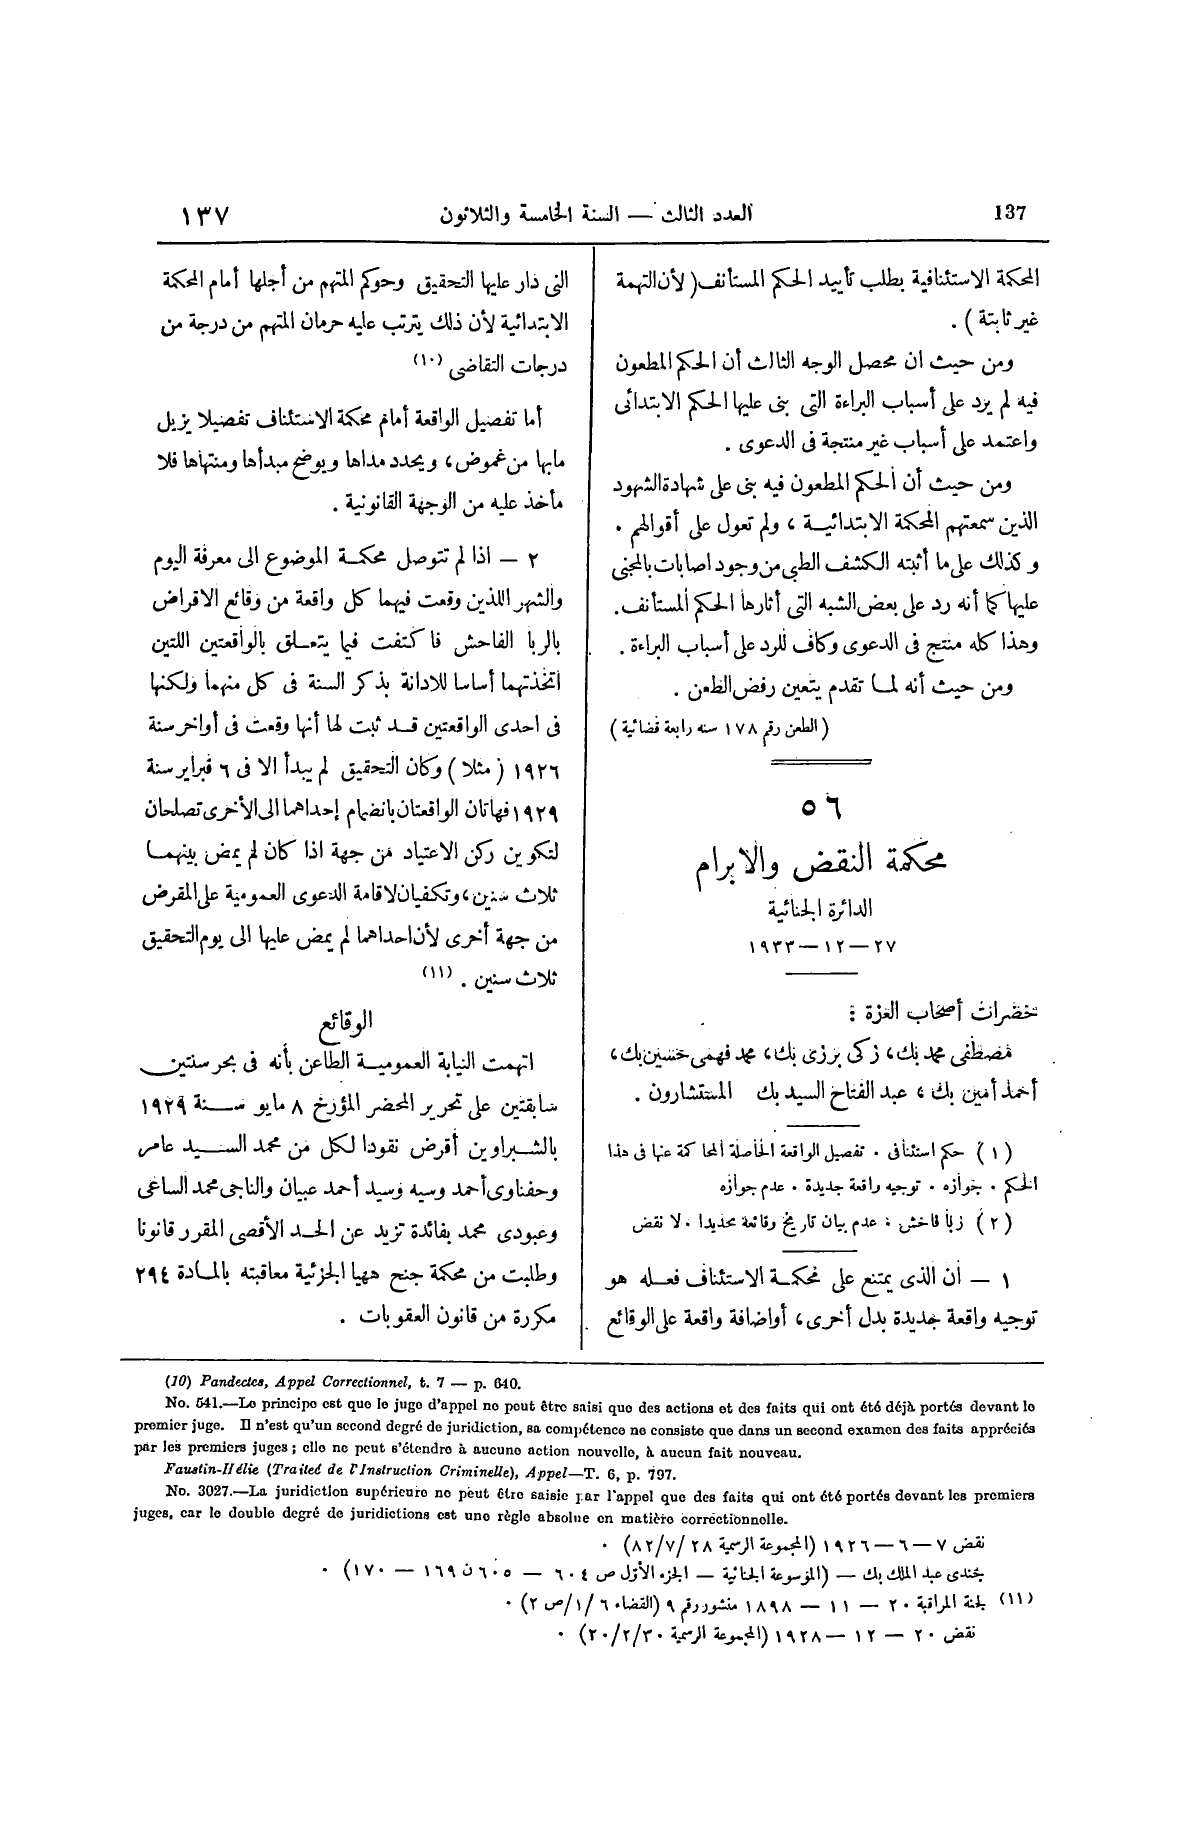 137
العدد الثالث — السنة الخامسة والثلاثون
١٣٧
المحكمة الاستئنافية بطلب تأييد الحكم المستأنف ( لأن التهمة
غير ثابتة ) .
ومن حيث ان محصل الوجه الثالث أن الحكم المطعون
فيه لم يرد على أسباب البراءة التى بنى عليها الحكم الابتدائى
واعتمد على أسباب غير منتجة فى الدعوى .
ومن حيث أن الحكم المطعون فيه بنى على شهادة الشهود
الذين سمعتهم المحكمة الابتدائية ، ولم تعول على أقوالهم .
وكذلك على ما أثبته الكشف الطبى من وجود اصابات بالمجنى
عليها كما أنه رد على بعض الشبه التى أثارها الحكم المستأنف .
وهذا كله منتج فى الدعوى وكاف للرد على أسباب البراءة .
ومن حيث أنه لما تقدم يتعين رفض الطعن .
( الطعن رقم ١٧٨ سنه رابعة قضائية )
٥٦
محكمة النقض والابرام
الدائرة الجنائية
٢٧ — ١٢ — ١٩٣٣
حضرات أصحاب العزة :
مصطفى محمد بك ، زكى برزى بك ، محمد فهمى حسين بك ،
أحمد أمين بك ، عبد الفتاح السيد بك المستشارون .
( ١ ) حكم استئنافى . تفصيل الواقعة الحاصلة المحاكمة عنها فى هذا
الحكم . جوازه . توجيه واقعة جديدة . عدم جوازه
( ٢ ) ربا فاحش . عدم بيان تاريخ وقائعه تحديدا . لا نقض
١ — ان الذى يمتنع على محكمة الاستئناف فعله هو
توجيه واقعة جديدة بدل أخرى ، أو اضافة واقعة على الوقائع
التى دار عليها التحقيق وحوكم المتهم من أجلها أمام المحكمة
الابتدائية لأن ذلك يترتب عليه حرمان المتهم من درجة من
درجات التقاضى (١٠)
أما تفصيل الواقعة أمام محكمة الاستئناف تفصيلا يزيل
مابها من غموض ، ويحدد مداها ويوضح مبدأها ومنتهاها فلا
مأخذ عليه من الوجهة القانونية .
٢ — اذا لم تتوصل محكمة الموضوع الى معرفة اليوم
والشهر اللذين وقعت فيهما كل واقعة من وقائع الاقراض
بالربا الفاحش فاكتفت فيما يتعلق بالواقعتين اللتين
اتخذتهما أساسا للادانة بذكر السنة فى كل منهما ولكنها
فى احدى الواقعتين قد ثبت لها أنها وقعت فى أواخر سنة
١٩٢٦ ( مثلا ) وكان التحقيق لم يبدأ الا فى ٦ فبراير سنة
١٩٢٩ فهاتان الواقعتان بانضمام إحداهما الى الأخرى تصلحان
لتكوين ركن الاعتياد من جهة اذا كان لم يمض بينهما
ثلاث سنين ، وتكفيان لاقامة الدعوى العمومية على المقرض
من جهة أخرى لأن احداهما لم يمض عليها الى يوم التحقيق
ثلاث سنين . (١١)
الوقائع
اتهمت النيابة العمومية الطاعن بأنه فى بحر سنتين
سابقتين على تحرير المحضر المؤرخ ٨ مايو سنة ١٩٢٩
بالشبراوين أقرض نقودا لكل من محمد السيد عامر
وحفناوى أحمد وسيه وسيد أحمد عبيان والناجى محمد الساعى
وعبودى محمد بفائدة تزيد عن الحد الأقصى المقرر قانونا
وطلبت من محكمة جنح ههيا الجزئية معاقبته بالمادة ٢٩٤
مكررة من قانون العقوبات .
(10) Pandectes, Appel Correctionnel, t. 7 — p. 640.
No. 541.—Le principe est que le juge d'appel ne peut être saisi que des actions et des faits qui ont été déjà portés devant le
premier juge. Il n'est qu'un second degré de juridiction, sa compétence ne consiste que dans un second examen des faits appréciés
par les premiers juges ; elle ne peut s'étendre à aucune action nouvelle, à aucun fait nouveau.
Faustin-Hélie (Traiteé de l'Instruction Criminelle), Appel—T. 6, p. 797.
No. 3027.—La juridiction supérieure ne peut être saisie par l'appel que des faits qui ont été portés devant les premiers
juges, car le double degré de juridictions est une règle absolue en matière correctionnelle.
نقض ٧ — ٦ — ١٩٢٦ (المجموعة الرسمية ٢٨ /٧ /٨٢) .
جندى عبد الملك بك — (الموسوعة الجنائية — الجزء الأول ص ٦٠٤ — ٦٠٥ ن ١٦٩ — ١٧٠) .
(١١) لجنة المراقبة ٢٠ — ١١ — ١٨٩٨ منشور رقم ٩ (القضاء ٦ /١ /ص ٢) .
نقض ٢٠ — ١٢ — ١٩٢٨ (المجموعة الرسمية ٣٠ /٢ /٢٠) .